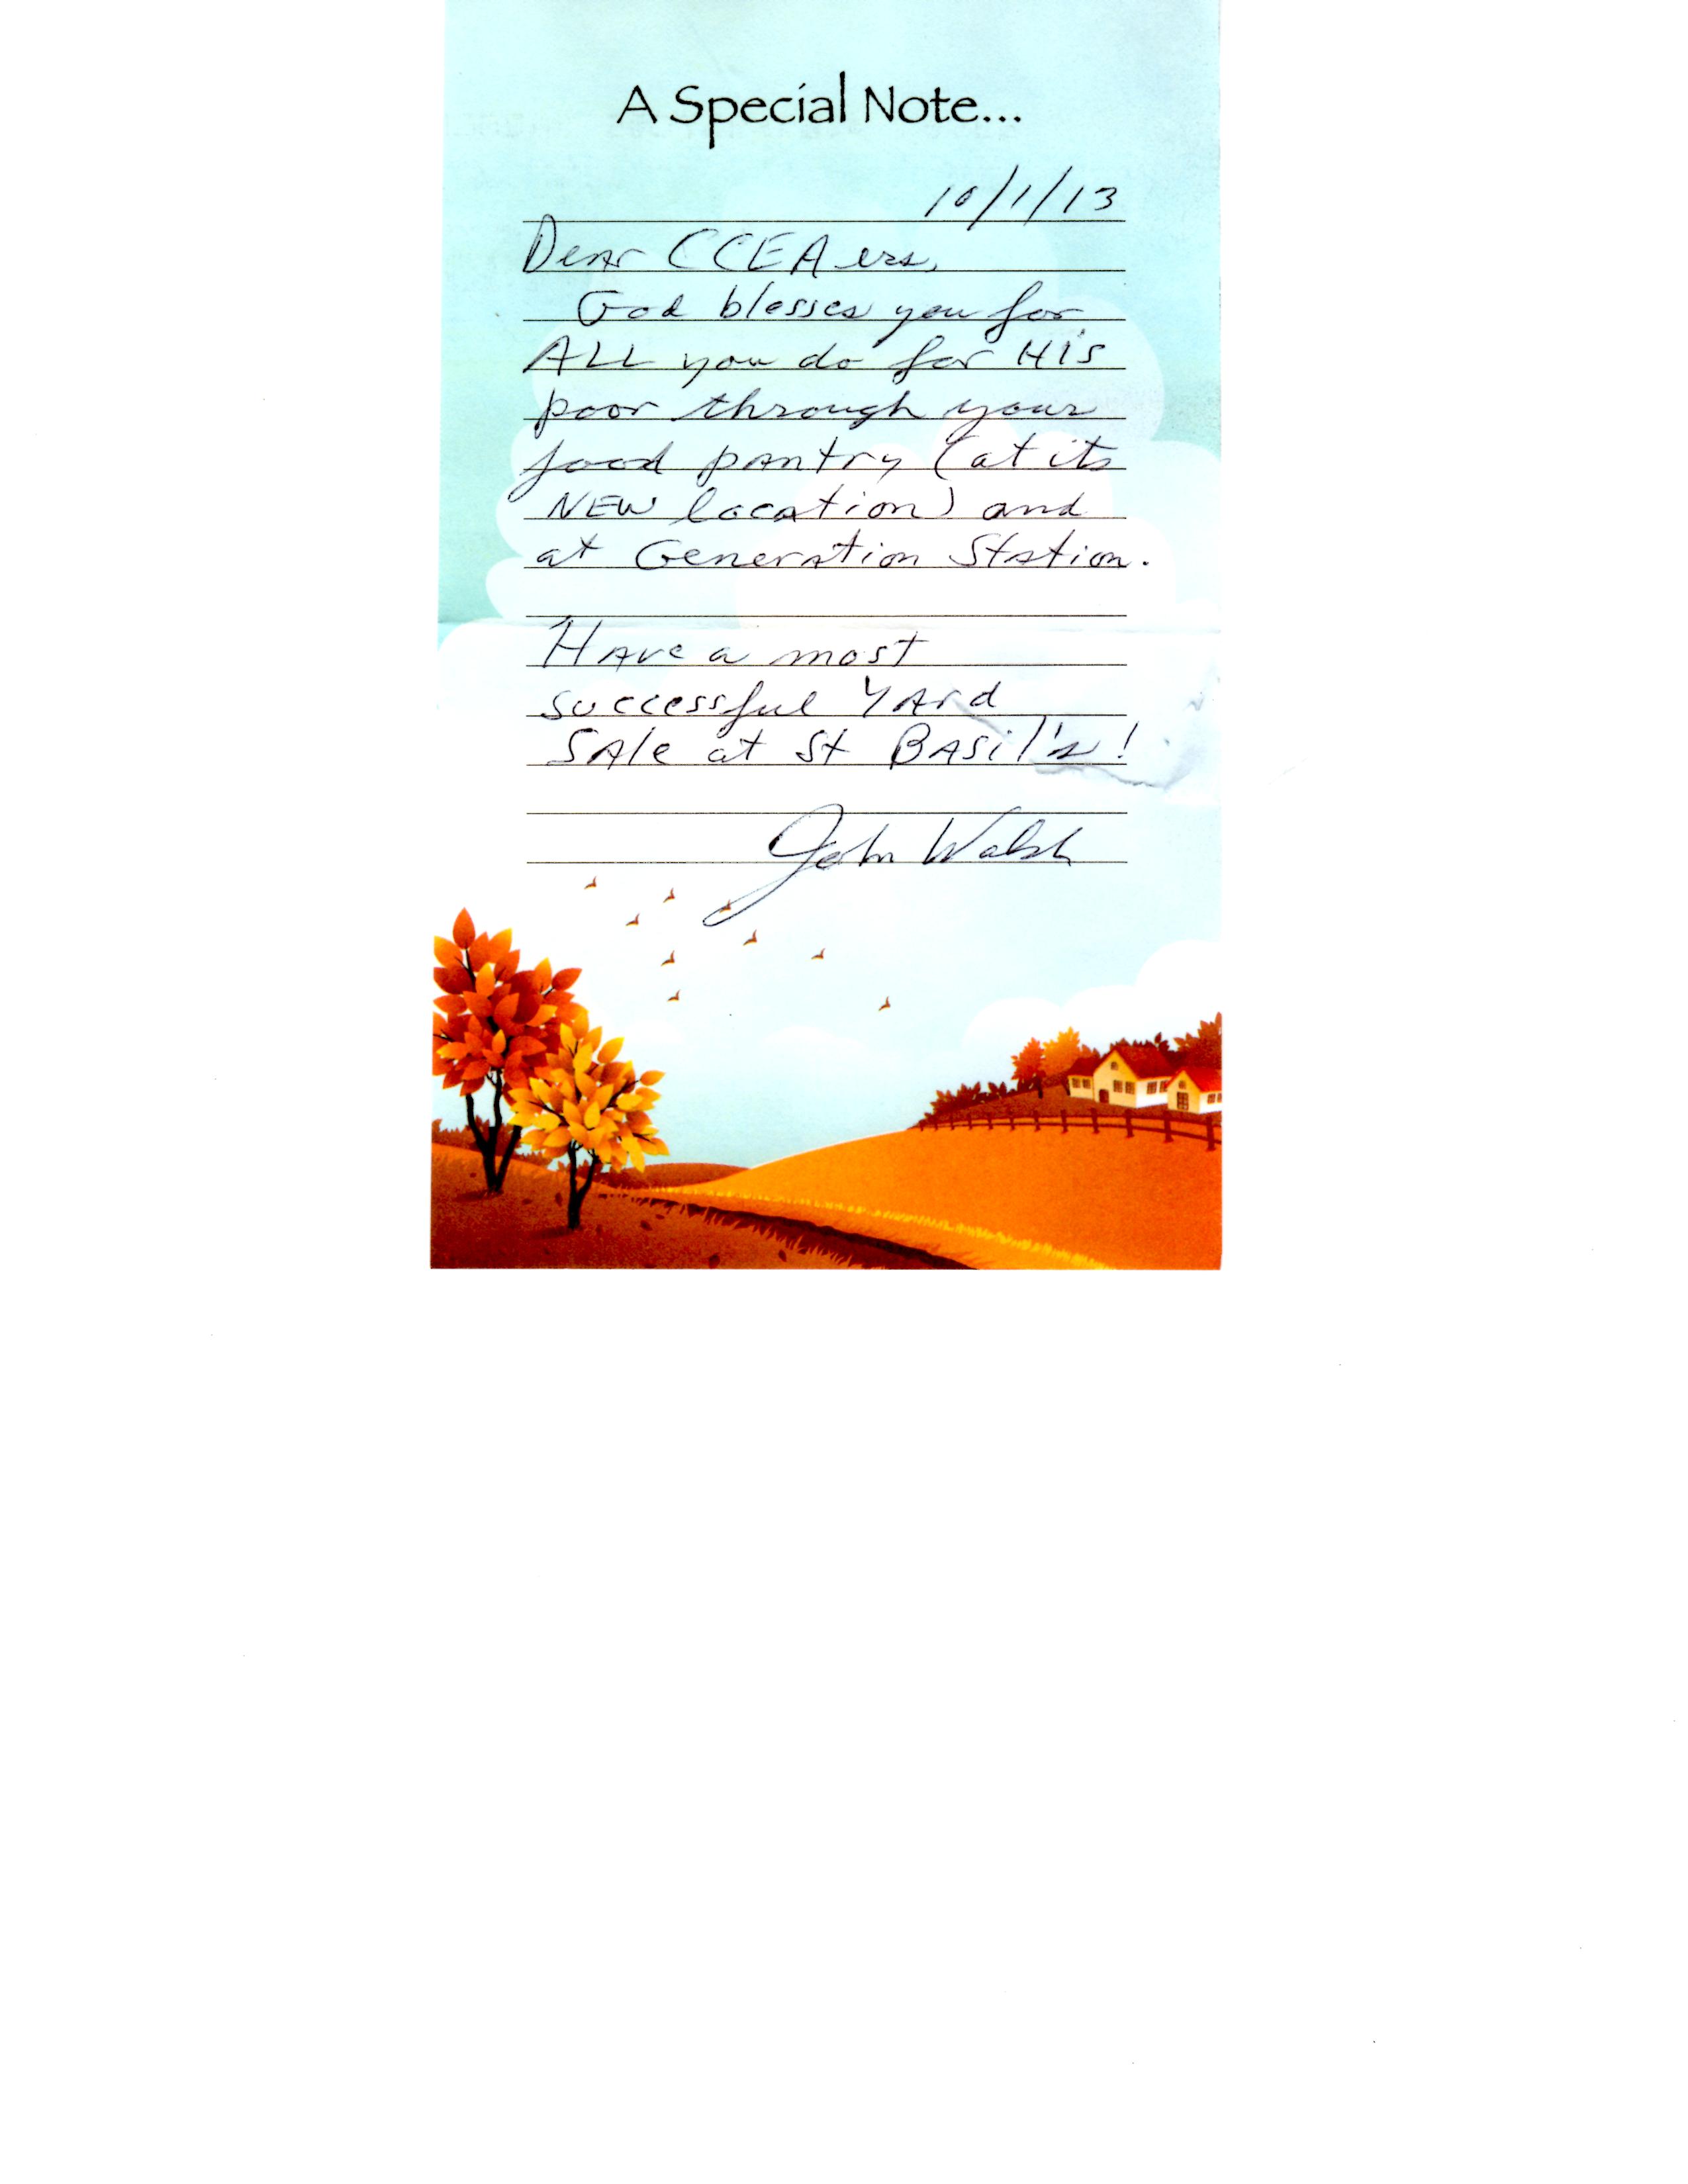 A Special Note...
10/1/13
Dear CCEAers,
God blesses you for
ALL you do for HIS
poor through your
food pantry (at its
NEW location) and
at Generation Station.
HAve a most
successful YArd
SAle at St BASil's!
John Walsh